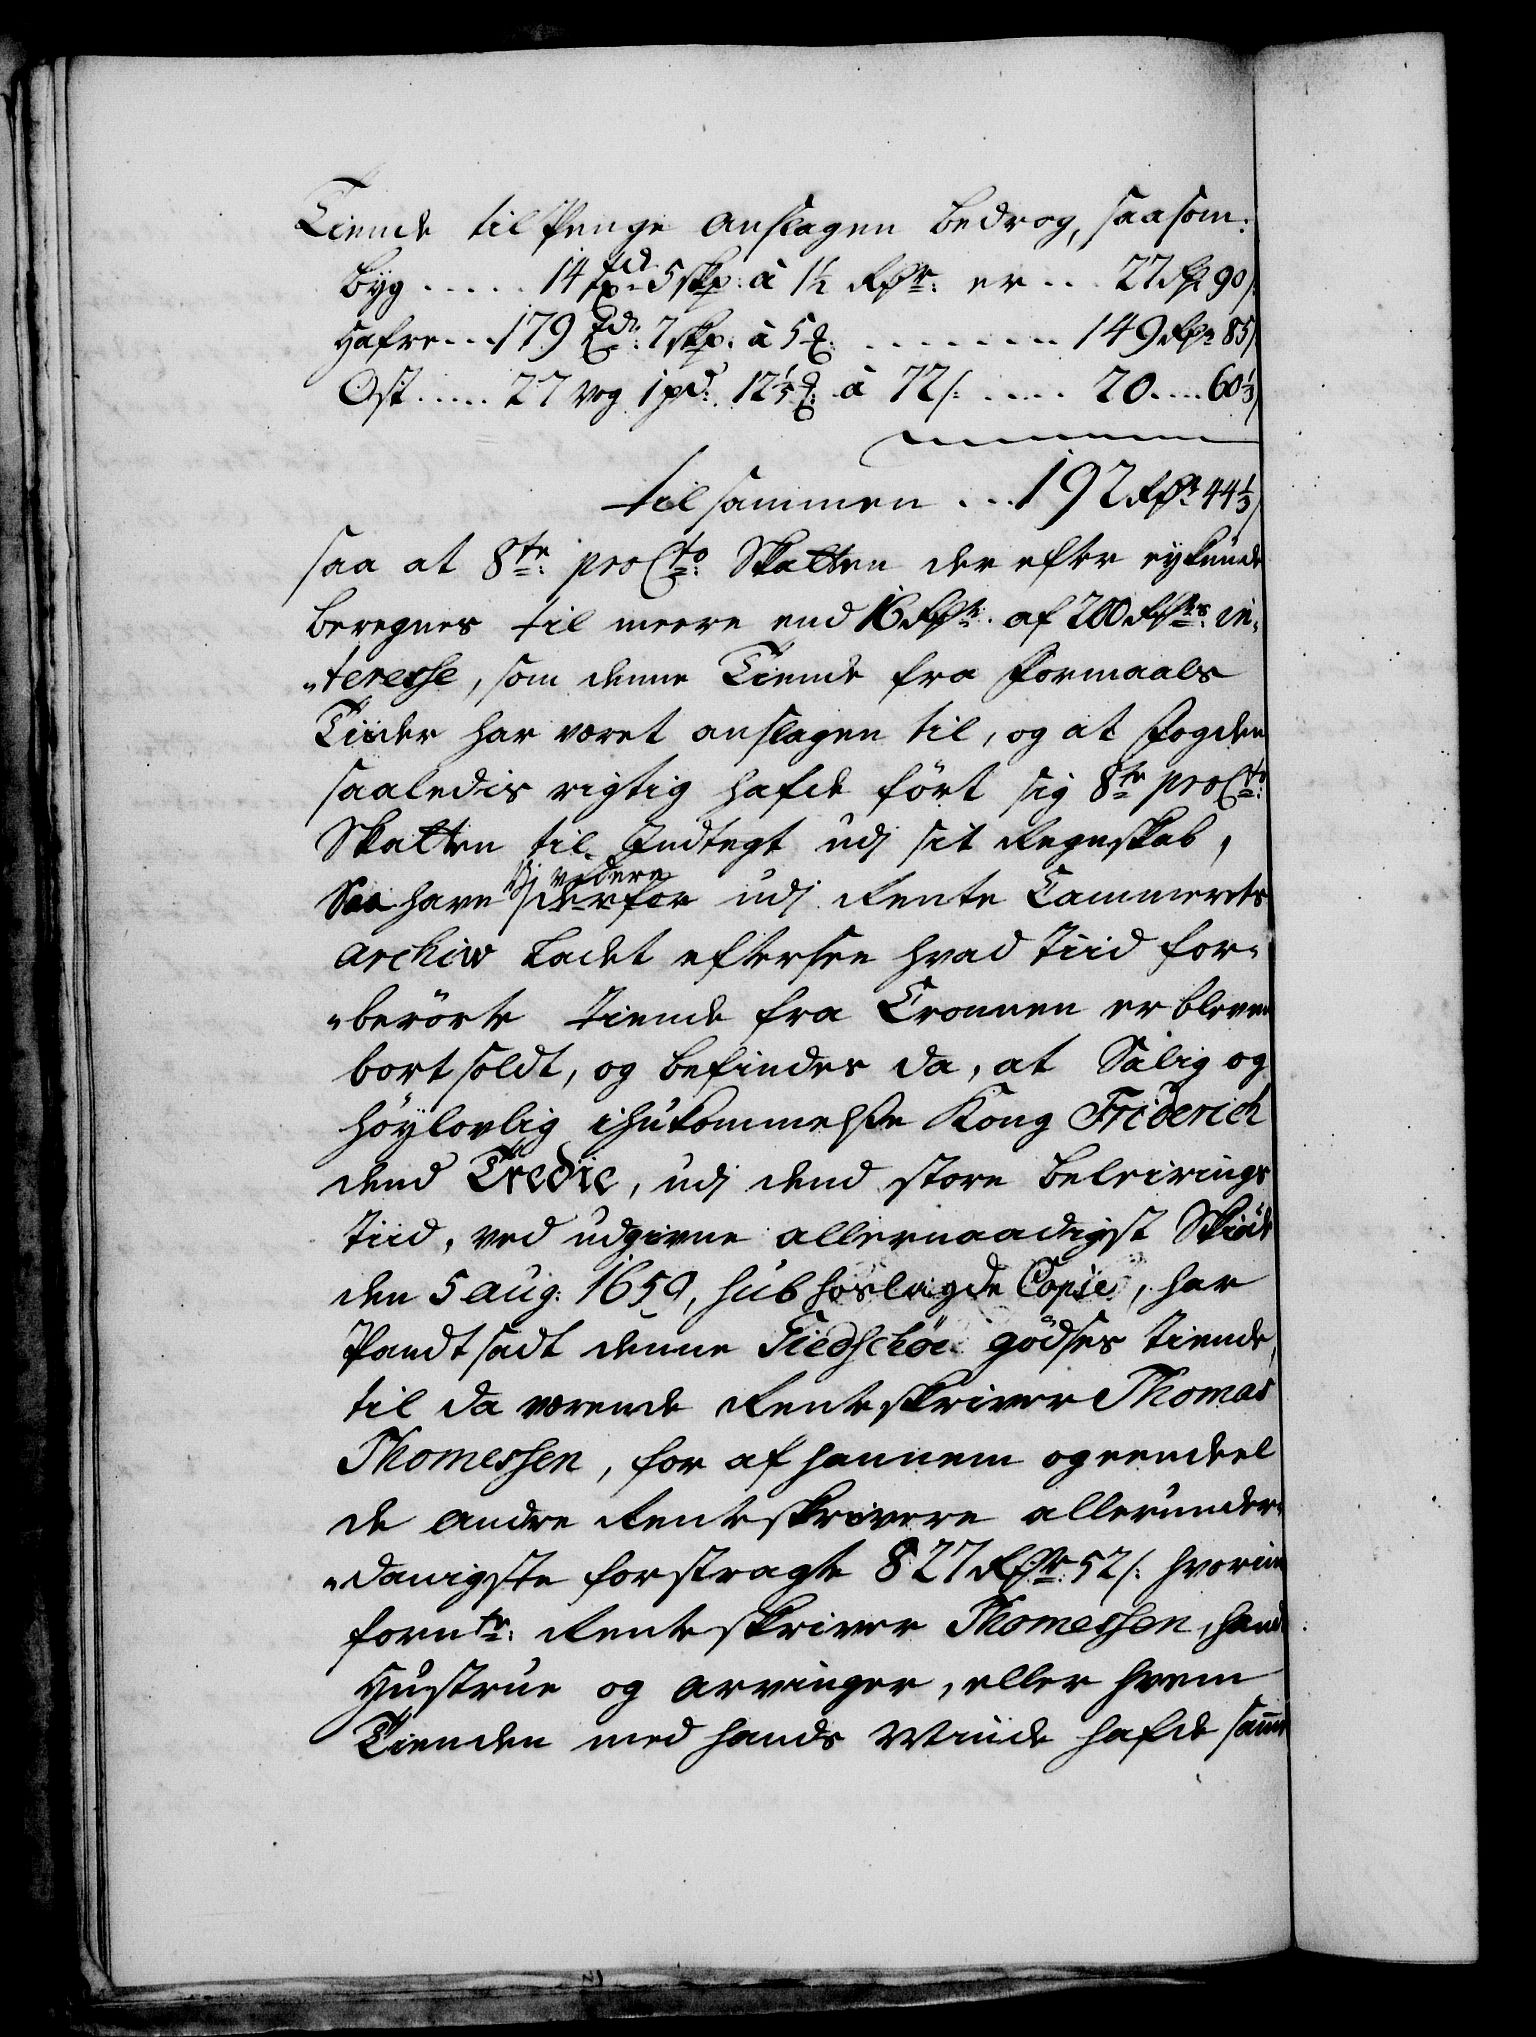 Tiende til Penge anslagen bedrog, saasom:
Byg ..... 14 Tdr 5 skp: à 1½ Rdr: er ... 27 Rdr 90 s:
Hafre ... 179 Tdr: 7 skp. à 5 ........ 149 Rdr 85 s
Ost ..... 27 vog 1 pd: 12⅕ à 72 s: ..... 20 .... 60⅓
tilsammen ... 192 Rdr 44⅓
saa at 8te: pro Cto: Skatten der efter ey kunde
beregnes til meere end 16 Rdr: af 200 Rdrs: in-
-teresse, som denne Tiende fra formaals
Tiider har været anslagen til, og at Fogden
saaledis rigtig hafde ført sig 8te pro Cto:
Skatten til Indtegt udj sit Regnskab,
Saa have Vj videre derfor udj Rente Cammerets
Archiv ladet eftersee hvad Tiid for-
-berörte Tiende fra Cronnen er bleven
bortsoldt, og befindes da, at Salig og
höylovlig ihukommelse Kong Friderich
dend Tredie, udj dend store beleirings
Tiid, ved udgivne allernaadigst Skiöde
den 5 aug: 1659, sub hoslagde Copie, har
Pandtsadt denne godses Tiende,
til da værende Renteskriver Thomas
Thomessen, for af hannem og eendeel
de andre Renteskrivere allerunder-
-danigste forstragte 827 Rdr: 52 s: hvorim
fornte: Renteskriver Thomessen, hands
Hustrue og arvinger, eller hvem
Tienden med hands Minde hafde samme